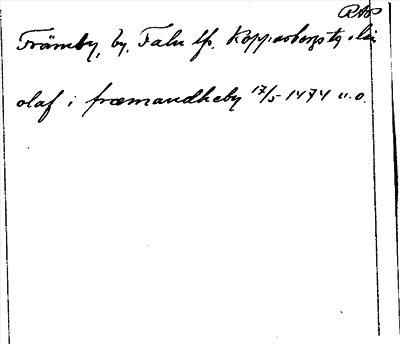 RAP
Främby, by, Falu lfs. Kopparbergs tg, län
olaf i fræmandheby 17/5 1474 u.o.